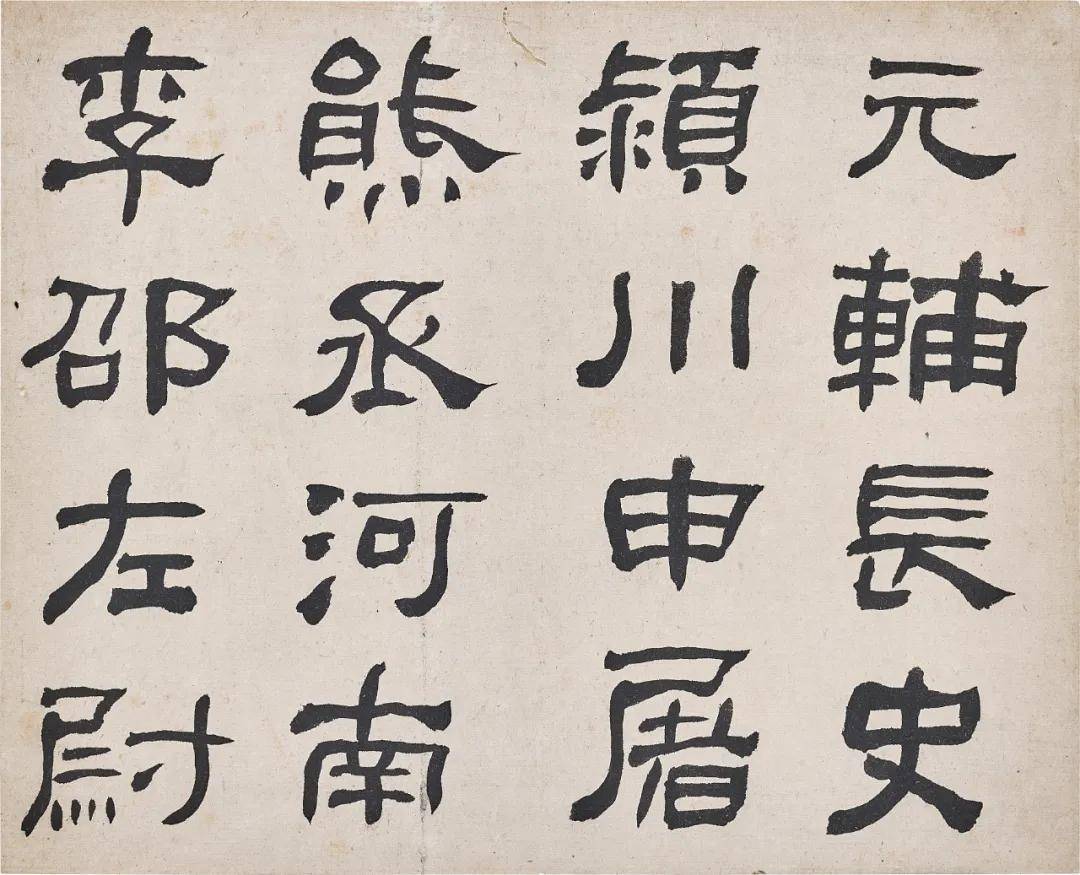 元輔長史
潁川申屠
熊丞河南
李邵左尉